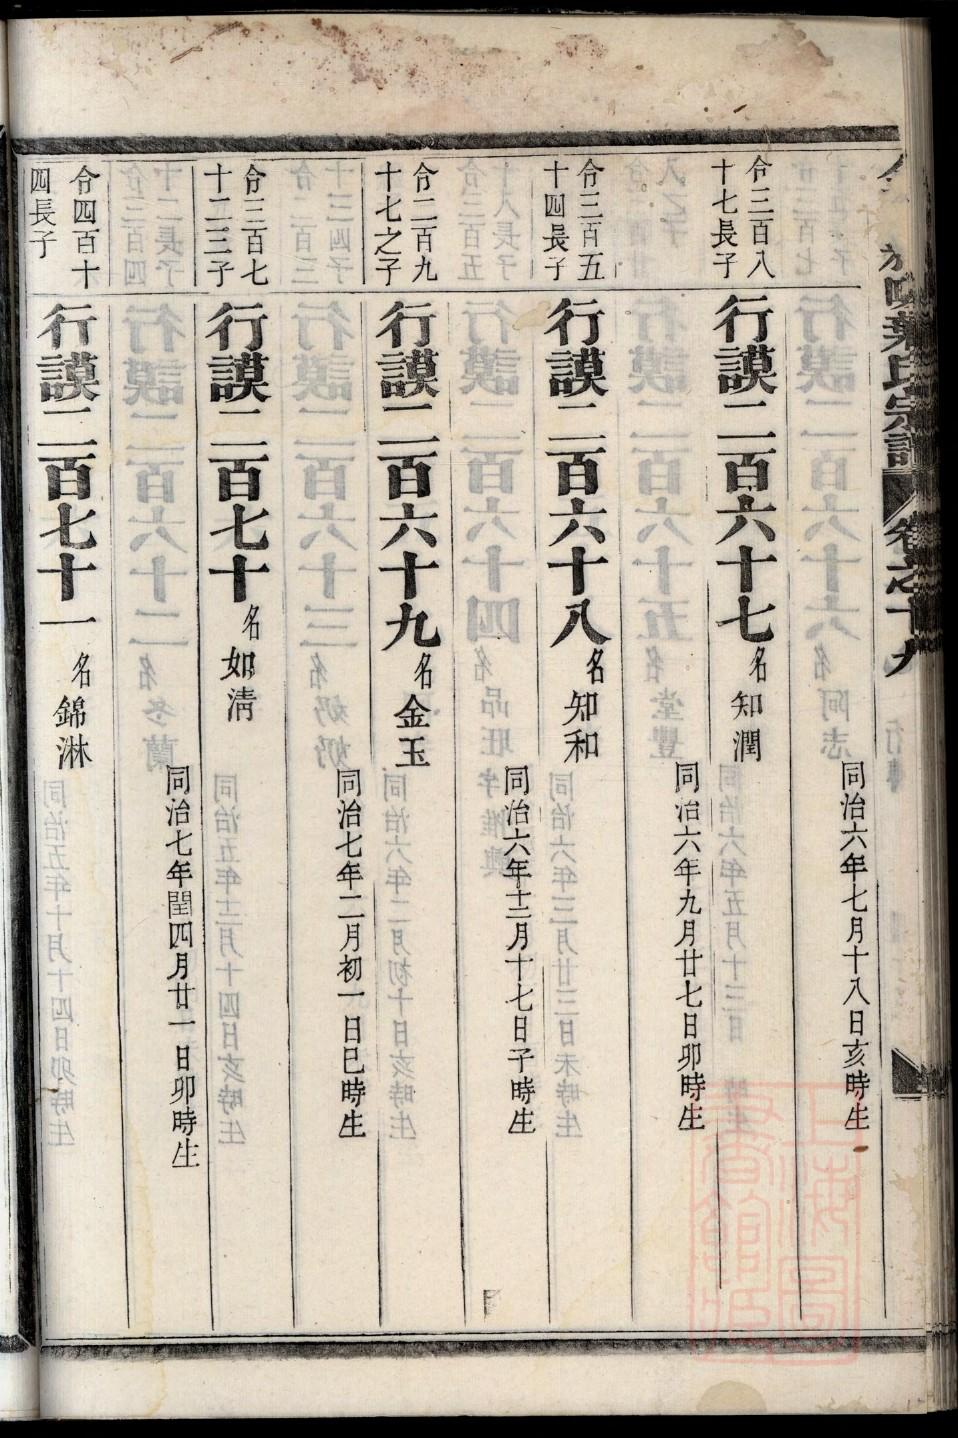 葉氏宗譜 卷之十九
同治六年七月十八日亥時生
合三百八
十七長子
行謨二百六十七 名知潤
同治六年九月廿七日卯時生
合三百五
十四長子
行謨二百六十八 名知和
同治六年十二月十七日子時生
合二百九
十七之子
行謨二百六十九 名金玉
同治七年二月初一日巳時生
合三百七
十二三子
行謨二百七十 名如清
同治七年閏四月廿一日卯時生
合四百十
四長子
行謨二百七十一 名錦淋
上海圖
書館藏